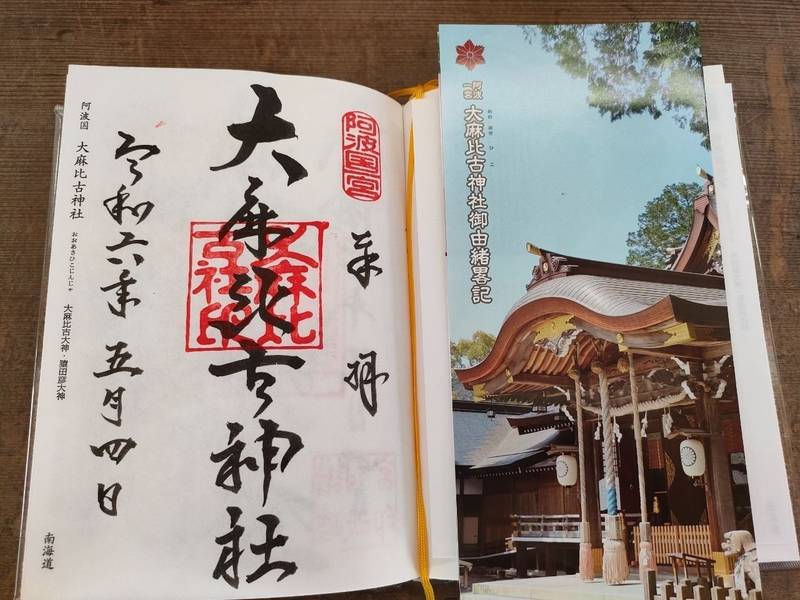 阿波国宮
奉拝
大麻比古神社
大麻比古社印
令和六年五月四日
阿波国 大麻比古神社 おおあさひこじんじゃ 大麻比古大神・猿田彦大神
南海道
阿波一宮 大麻比古神社御由緒畧記
おお あさ ひ こ